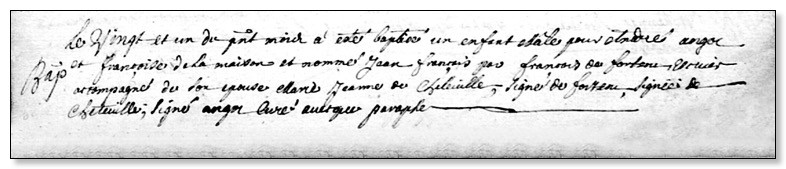 Le Vingt et un du pnt mois a été baptisé un enfant Male pour Andres angor
Bap et françoise de la maison et nommé Jean françois par francois de forteau Escuier
accompagné de son epouse Marie Jeanne de Cheteville, signé de forteau, signée de
Cheteville, signé angor Curé avecque paraphe